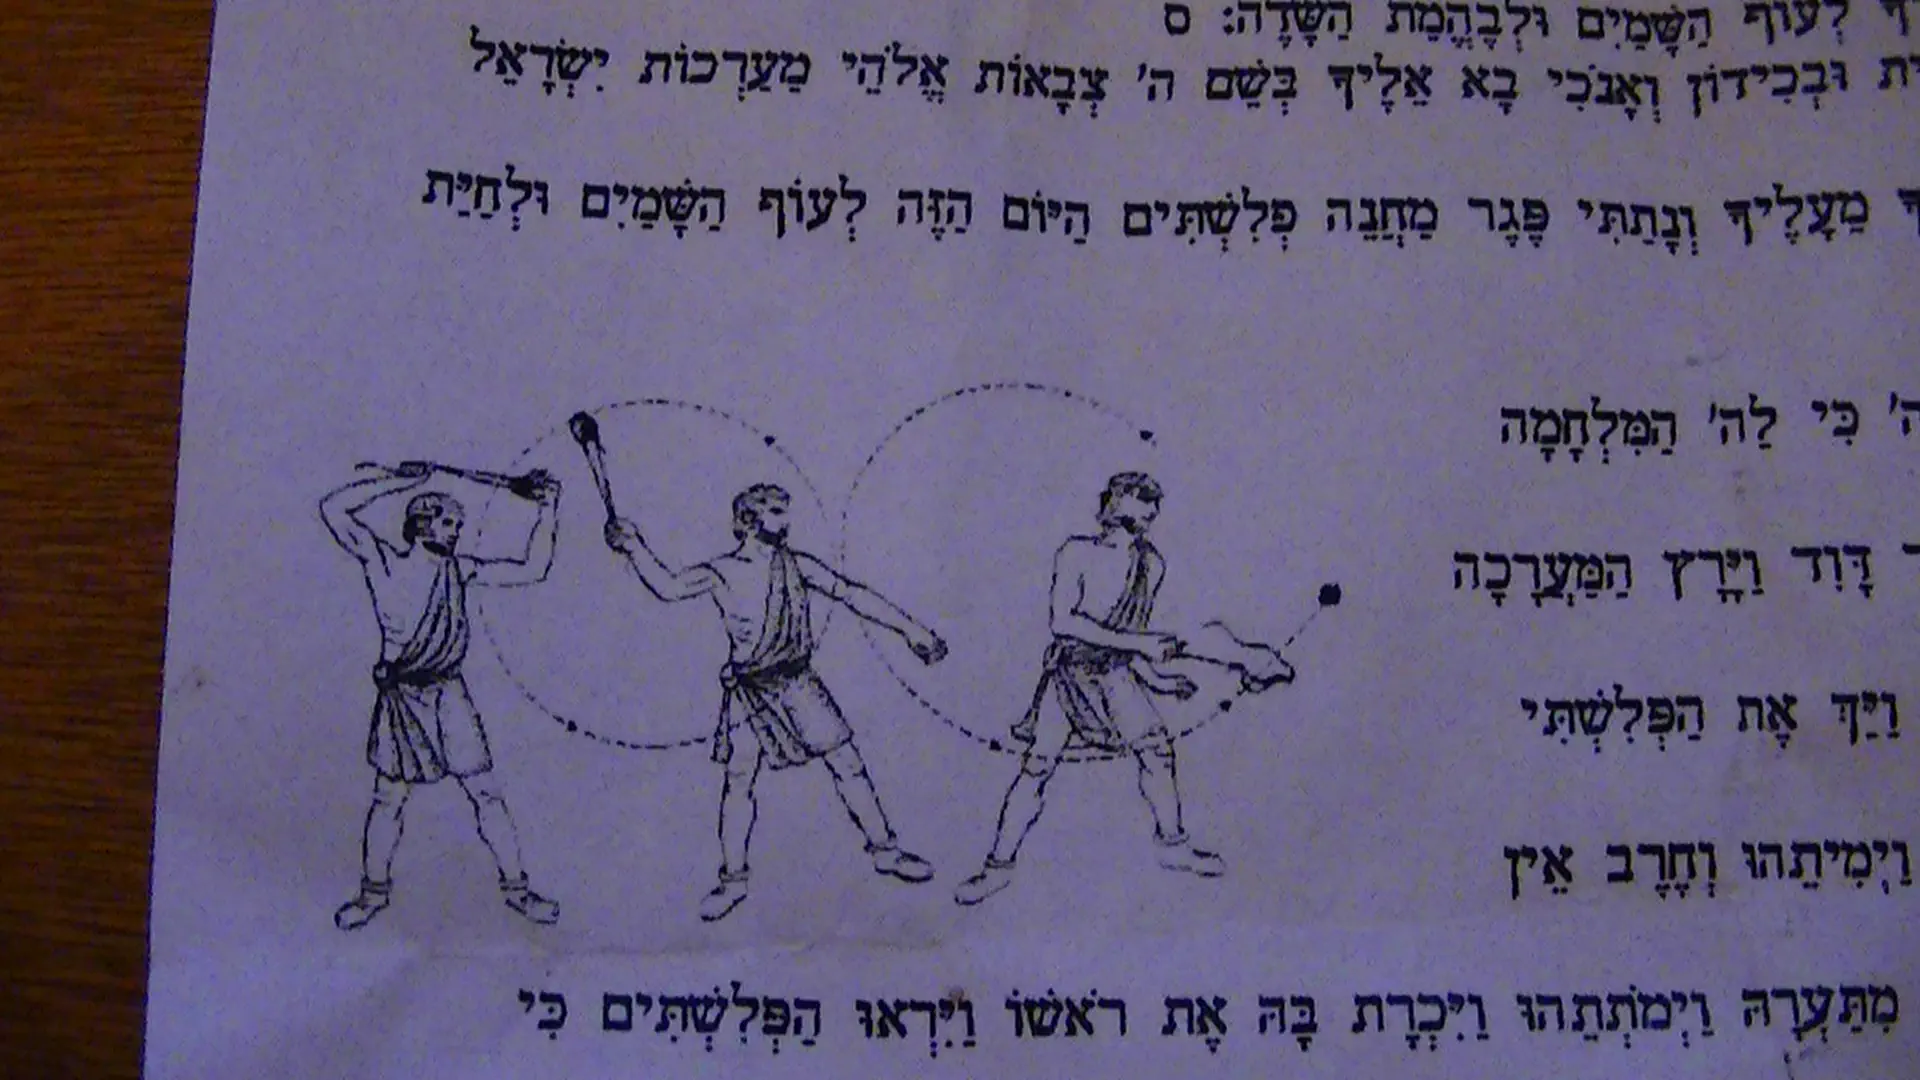 לְעוֹף הַשָּׁמַיִם וּלְבֶהֱמַת הַשָּׂדֶה: ס
וּבְכִידוֹן וְאָנֹכִי בָא אֵלֶיךָ בְּשֵׁם ה' צְבָאוֹת אֱלֹהֵי מַעַרְכוֹת יִשְׂרָאֵל
מֵעָלֶיךָ וְנָתַתִּי פֶּגֶר מַחֲנֵה פְלִשְׁתִּים הַיּוֹם הַזֶּה לְעוֹף הַשָּׁמַיִם וּלְחַיַּת
ה' כִּי לַה' הַמִּלְחָמָה
דָּוִד וַיָּרָץ הַמַּעֲרָכָה
וַיַּךְ אֶת הַפְּלִשְׁתִּי
וַיְמִיתֵהוּ וְחֶרֶב אֵין
מִתַּעְרָהּ וַיְמֹתְתֵהוּ וַיִּכְרָת בָּהּ אֶת רֹאשׁוֹ וַיִּרְאוּ הַפְּלִשְׁתִּים כִּי